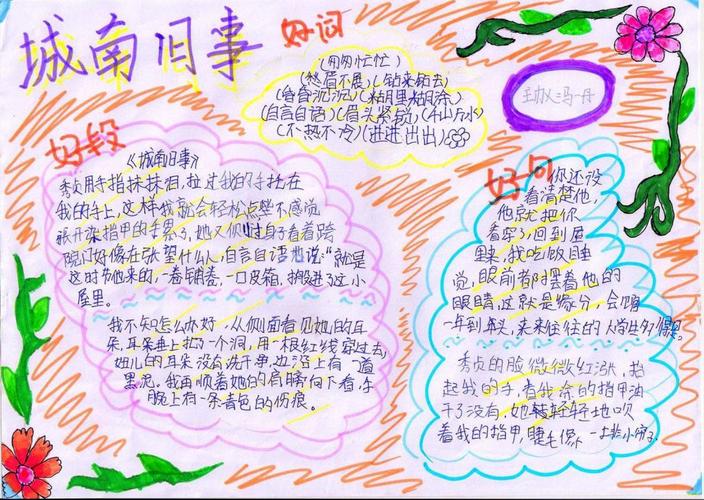 城南旧事
好词
(匆匆忙忙)
(愁眉不展)(钻来钻去)
(昏昏沉沉)(糊里糊涂)
(自言自语)(眉头紧锁)
(不热不冷)(进进出出)
主办:冯一丹
好段
《城南旧事》
秀贞用手指抹抹泪,拉过我的手托在
我的手上,这样我就会轻松点些不感觉
张开染指甲的手累了,她又侧过身子看着跨
院门好像在张望什么人,自言自语地说:"就是
这时节他来的,一卷铺盖,一口皮箱,搬进了这小
屋里。
我不知怎么办好,从侧面看见她的耳
朵,耳朵垂上扎了一个洞,用一根红线穿过去,
妞儿的耳朵没有洗干净,边沿上有一道
黑泥。我再顺着她的肩膀向下看,手
腕上有一条青色的伤痕。
好句
你还没
看清楚他,
他就把你
看穿了,回到屋
里来,我吃饭睡
觉,眼前都摆着他的
眼睛,这就是缘分,会馆
一年到头,来来往往的大学生多
秀贞的脸微微红涨,抬
起我的手,看我染的指甲油
干了没有,她轻轻地吹
着我的指甲,睫毛像一排小帘子